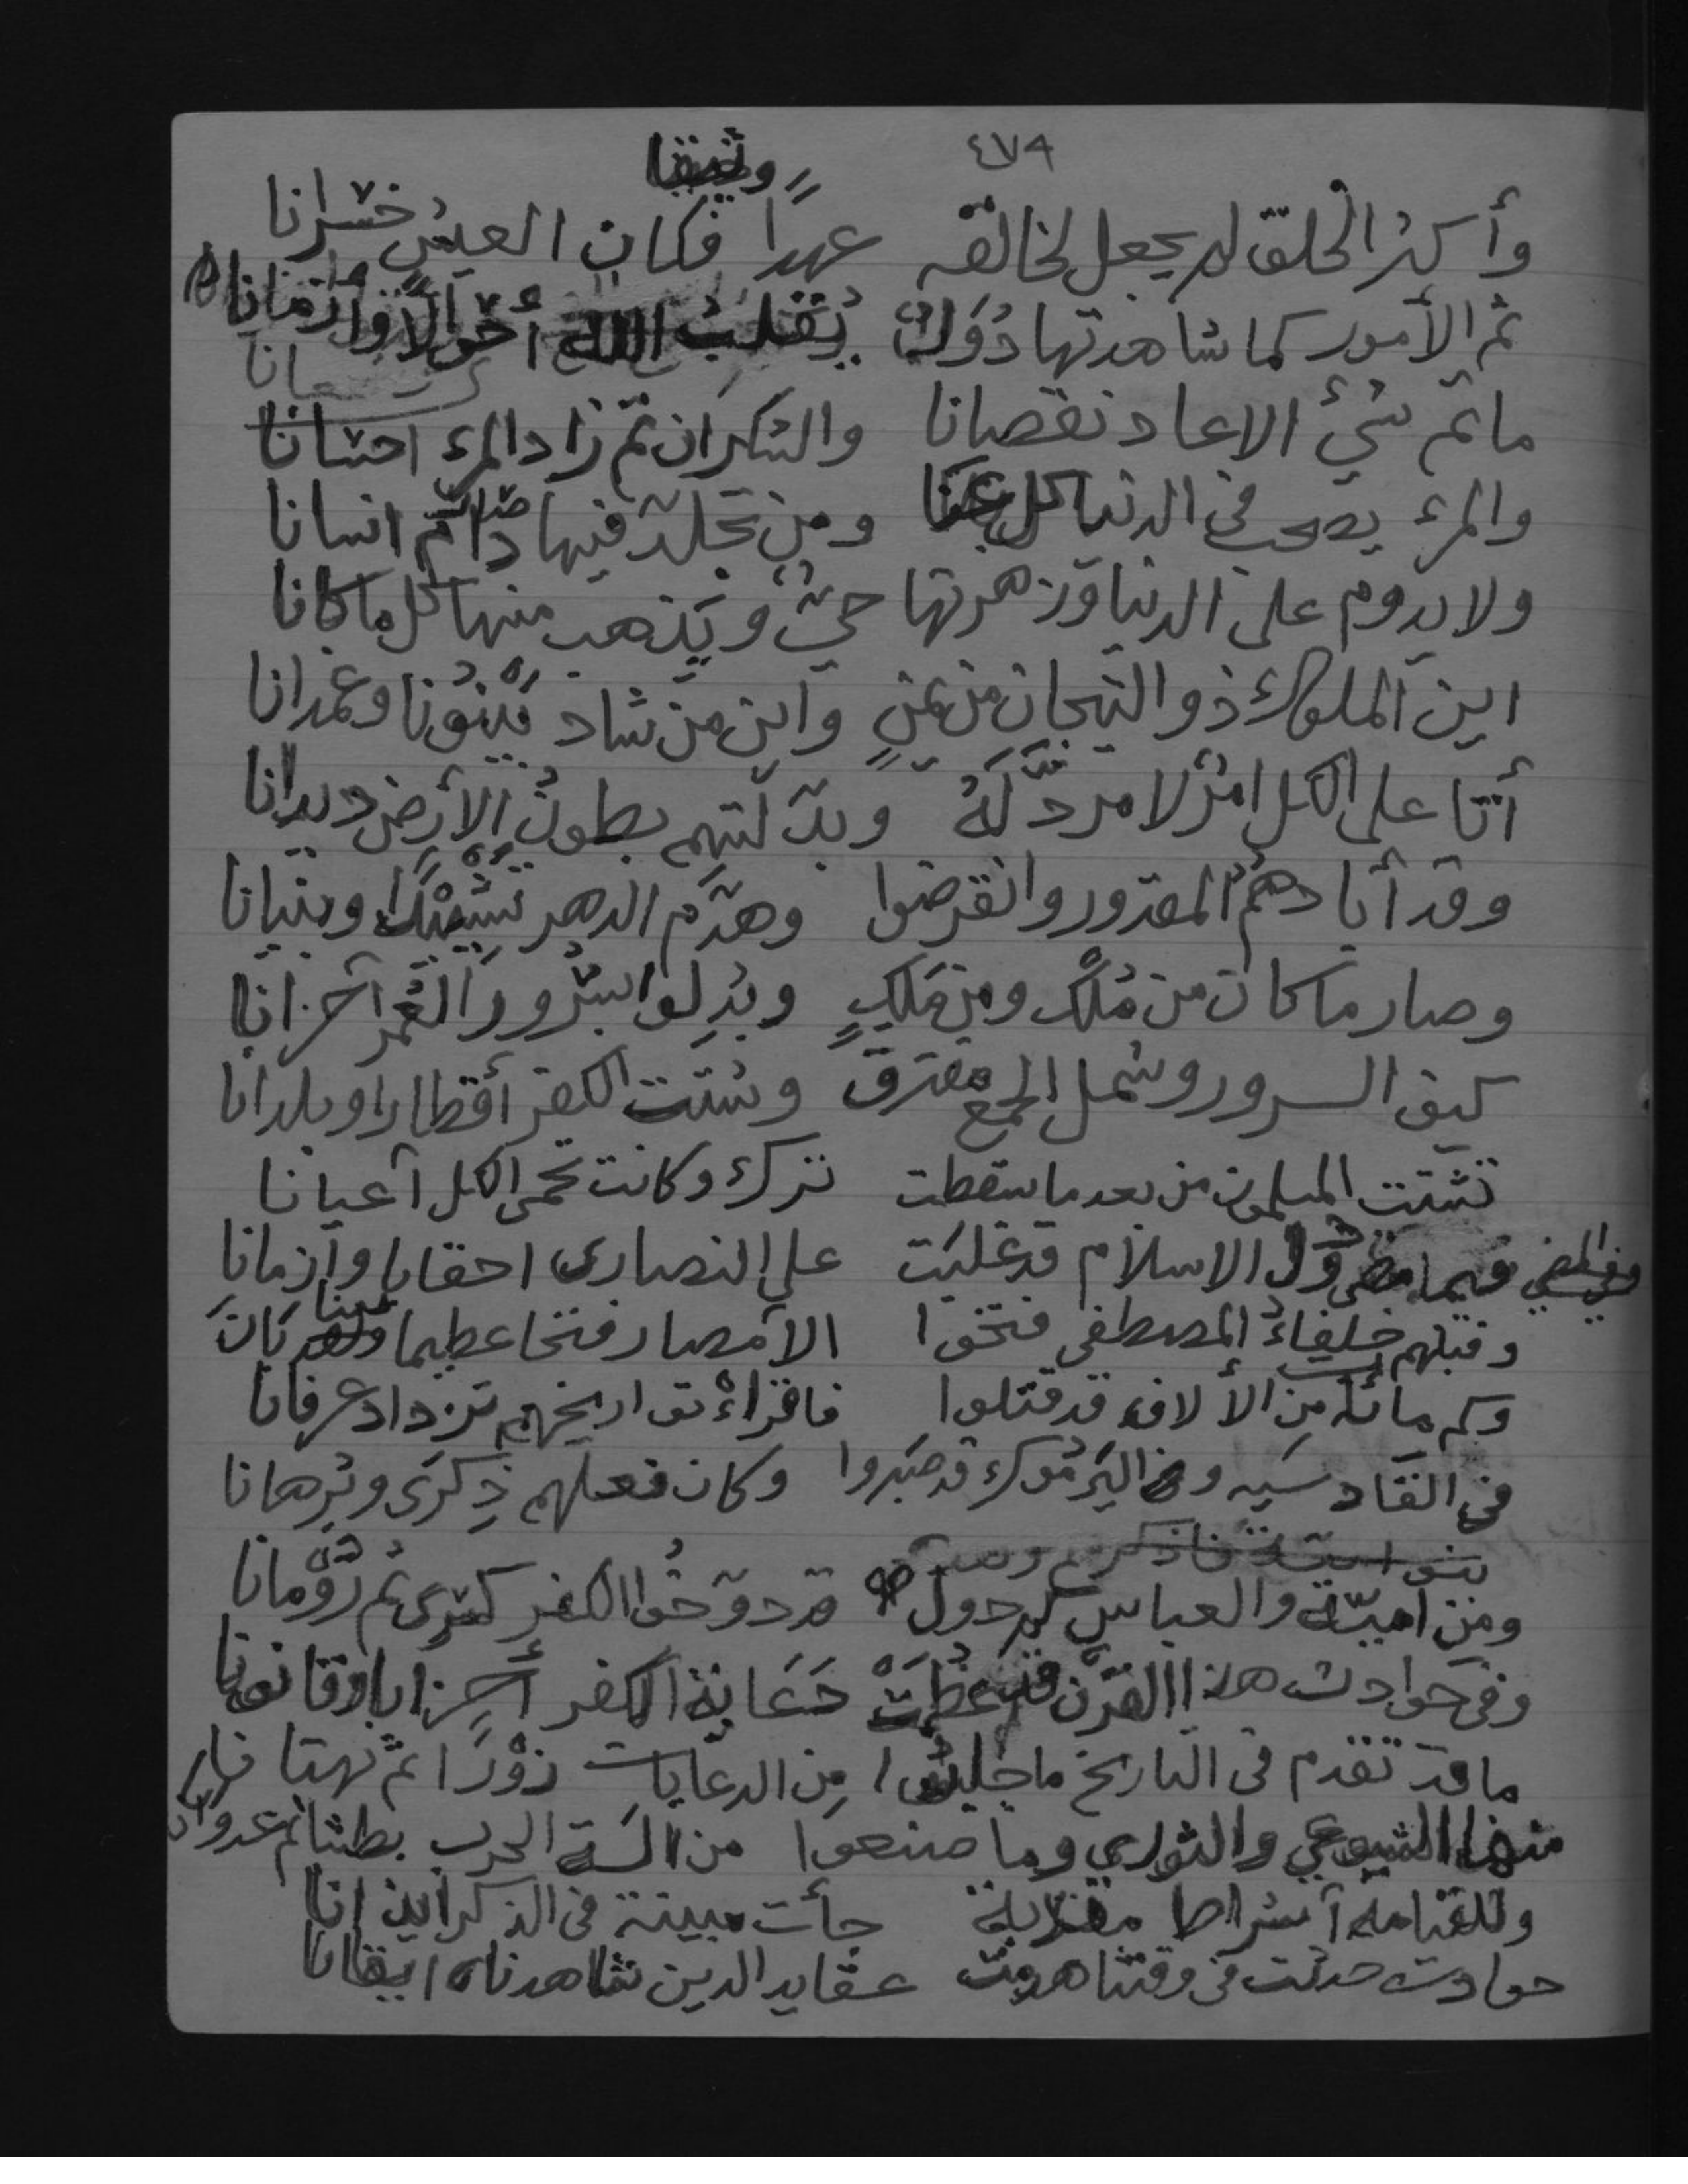 ٤٧٩
وأكثر الخلق لم يجعل لخالقه عهدًا فكان العيش خسرانا
ثم الأمور كما شاهدتها دُوَلٌ يُقَلِّبُ الله أحوالًا وأزمانا
ما تم شيءٌ الا عاد نقصانا والشكران تم زاد المرء احسانا
والمرء يصحب في الدنيا كل ومن تخلد فيها دائم انسانا
ولا يدوم على الدنيا وزهرتها حيّ ويذهب منها كل ما كانا
اين الملوك ذو التيجان من يمنٍ واين من شاد بَيْنُونا وغمدانا
أتا على الكل امرٌ لا مردَّ لَهُ وبدّلتهم بطونُ الأرض ديدانا
وقد أبادهُمُ المقدور وانقرضوا وهدّم الدهر تَشْيِيْدًا وبنيانا
وصار ما كان من مُلْكٍ ومن مَلِكٍ وبُدِلوا بسُرور العُمر آحزانا
كيف السرور وشمل الجمع مفترق وشتت الكفر أقطارا وبلدانا
تشتت المسلمون من بعد ما سقطت ترك وكانت تحمي الكل آعيانا
فيما مضى دُوَلُ الاسلام قد غلبَت على النصارى احقابا وآزمانا
وقبلهم خلفاءُ المصطفى فتحوا الآمصار فتحا عظيما
وكم مائة من الألاف قد قتلوا فاقراءْ تواريخهم تزداد عرفانا
في القادسيه وفي اليَرمُوك قد صَبَروا وكان فعلهم ذِكرَى وبُرهانا
ومن أميّة والعباس كم دول قد دوّخُوا الكفر كسرى ثم رُوّمانا
وفي حوادث هذا القرن قد عظمَتْ دَعَاية الكفر أحزابا وقانونا
ما قد تقدم في التاريخ ما جلبُوا مِن الدعايات زوْرًا ثم بهتانا
منها الشيوعي والثوري وما صنعوا من السة الحرب بطشا ثم عدوانا
وللقيامه آشراط جآت مبينة في الذكر
حوادث حدثت في وقتنا هدمت عقايد الدين شاهدناه ايقانا